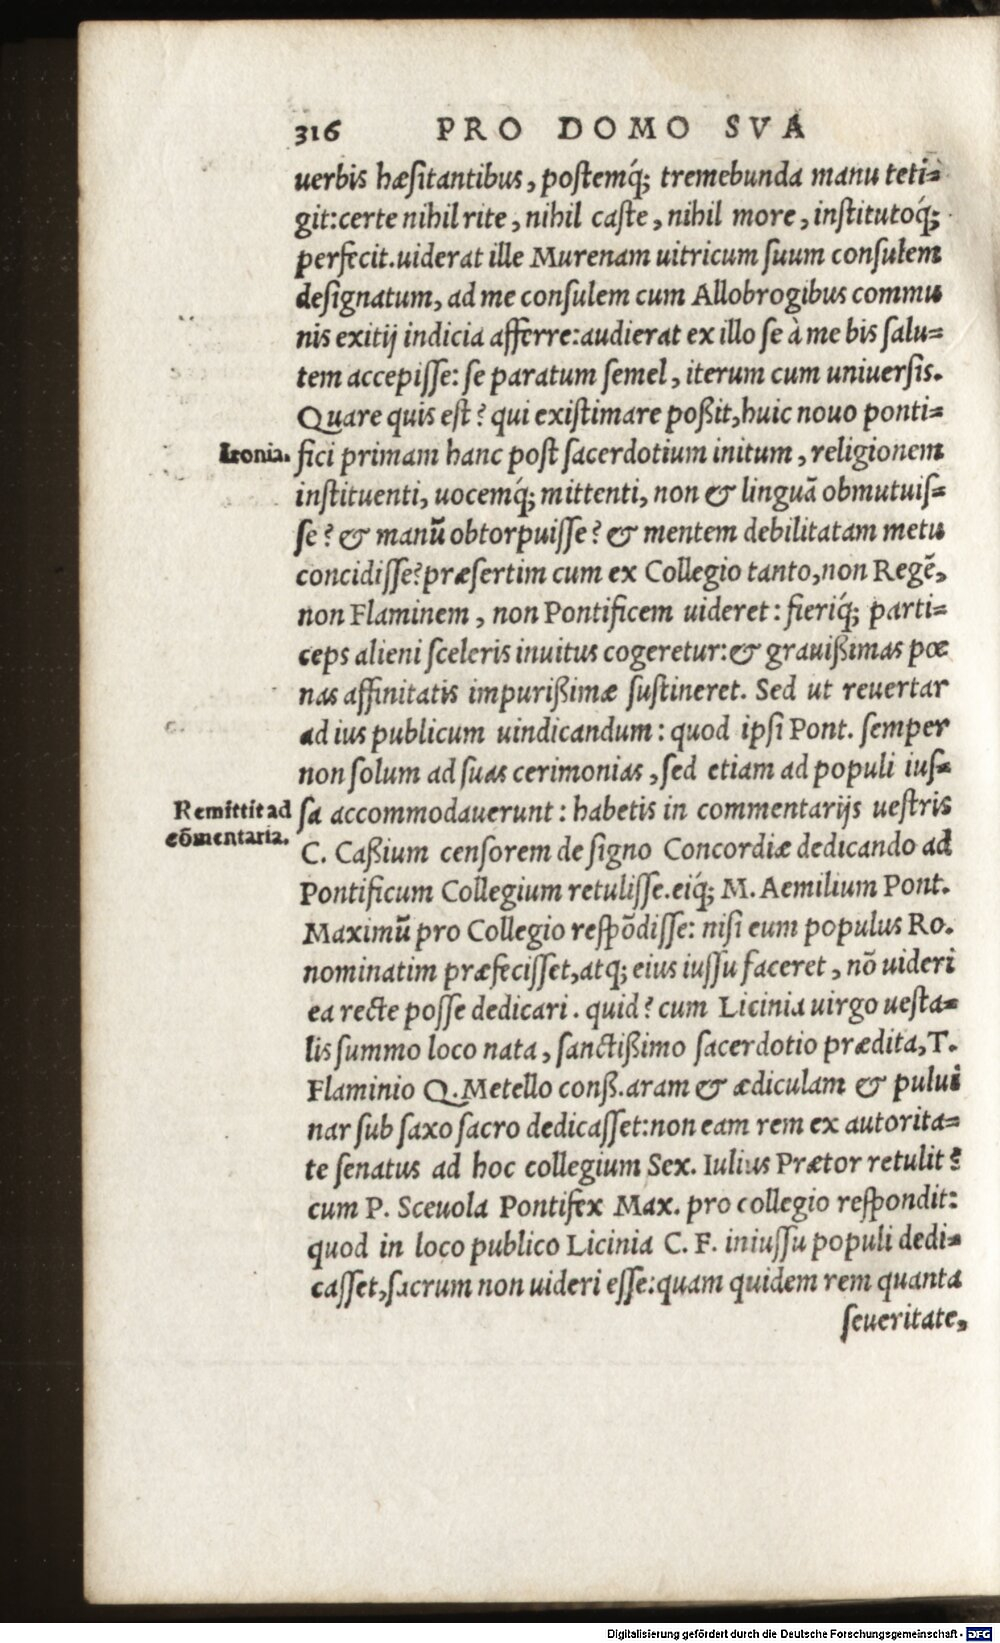 316 PRO DOMO SVA
uerbis hæſitantibus, poſtemq́; tremebunda manu teti=
git:certe nihil rite, nihil caſte, nihil more, inſtitutoq́;
perfecit.uiderat ille Murenam uitricum ſuum conſulem
deſignatum, ad me conſulem cum Allobrogibus commu
nis exitij indicia afferre:audierat ex illo ſe à me bis ſalu=
tem accepiſſe: ſe paratum ſemel, iterum cum uniuerſis.
Quare quis eſt? qui exiſtimare poßit,huic nouo ponti=
Ironia.
fici primam hanc poſt ſacerdotium initum, religionem
inſtituenti, uocemq́; mittenti, non & linguã obmutuiſ=
ſe? & manũ obtorpuiſſe? & mentem debilitatam metu
concidiſſe?præſertim cum ex Collegio tanto,non Regẽ,
non Flaminem, non Pontificem uideret: fieriq́; parti=
ceps alieni ſceleris inuitus cogeretur:& grauißimas pœ
nas affinitatis impurißimæ ſuſtineret. Sed ut reuertar
ad ius publicum uindicandum: quod ipſi Pont. ſemper
non ſolum ad ſuas cerimonias, ſed etiam ad populi iuſ=
Remittit ad
cõmentaria.
ſa accommodauerunt: habetis in commentarijs ueſtris
C. Caßium cenſorem de ſigno Concordiæ dedicando ad
Pontificum Collegium retuliſſe.eiq́; M. Aemilium Pont.
Maximũ pro Collegio reſpõdiſſe: niſi eum populus Ro.
nominatim præfeciſſet,atq; eius iuſſu faceret, nõ uideri
ea recte poſſe dedicari. quid? cum Licinia uirgo ueſta=
lis ſummo loco nata, ſanctißimo ſacerdotio prædita,T.
Flaminio Q.Metello conß.aram & ædiculam & pului
nar ſub ſaxo ſacro dedicaſſet:non eam rem ex autorita=
te ſenatus ad hoc collegium Sex. Iulius Prætor retulit?
cum P. Sceuola Pontifex Max. pro collegio reſpondit:
quod in loco publico Licinia C. F. iniuſſu populi dedi=
caſſet,ſacrum non uideri eſſe:quam quidem rem quanta
ſeueritate,
Digitalisierung gefördert durch die Deutsche Forschungsgemeinschaft - DFG